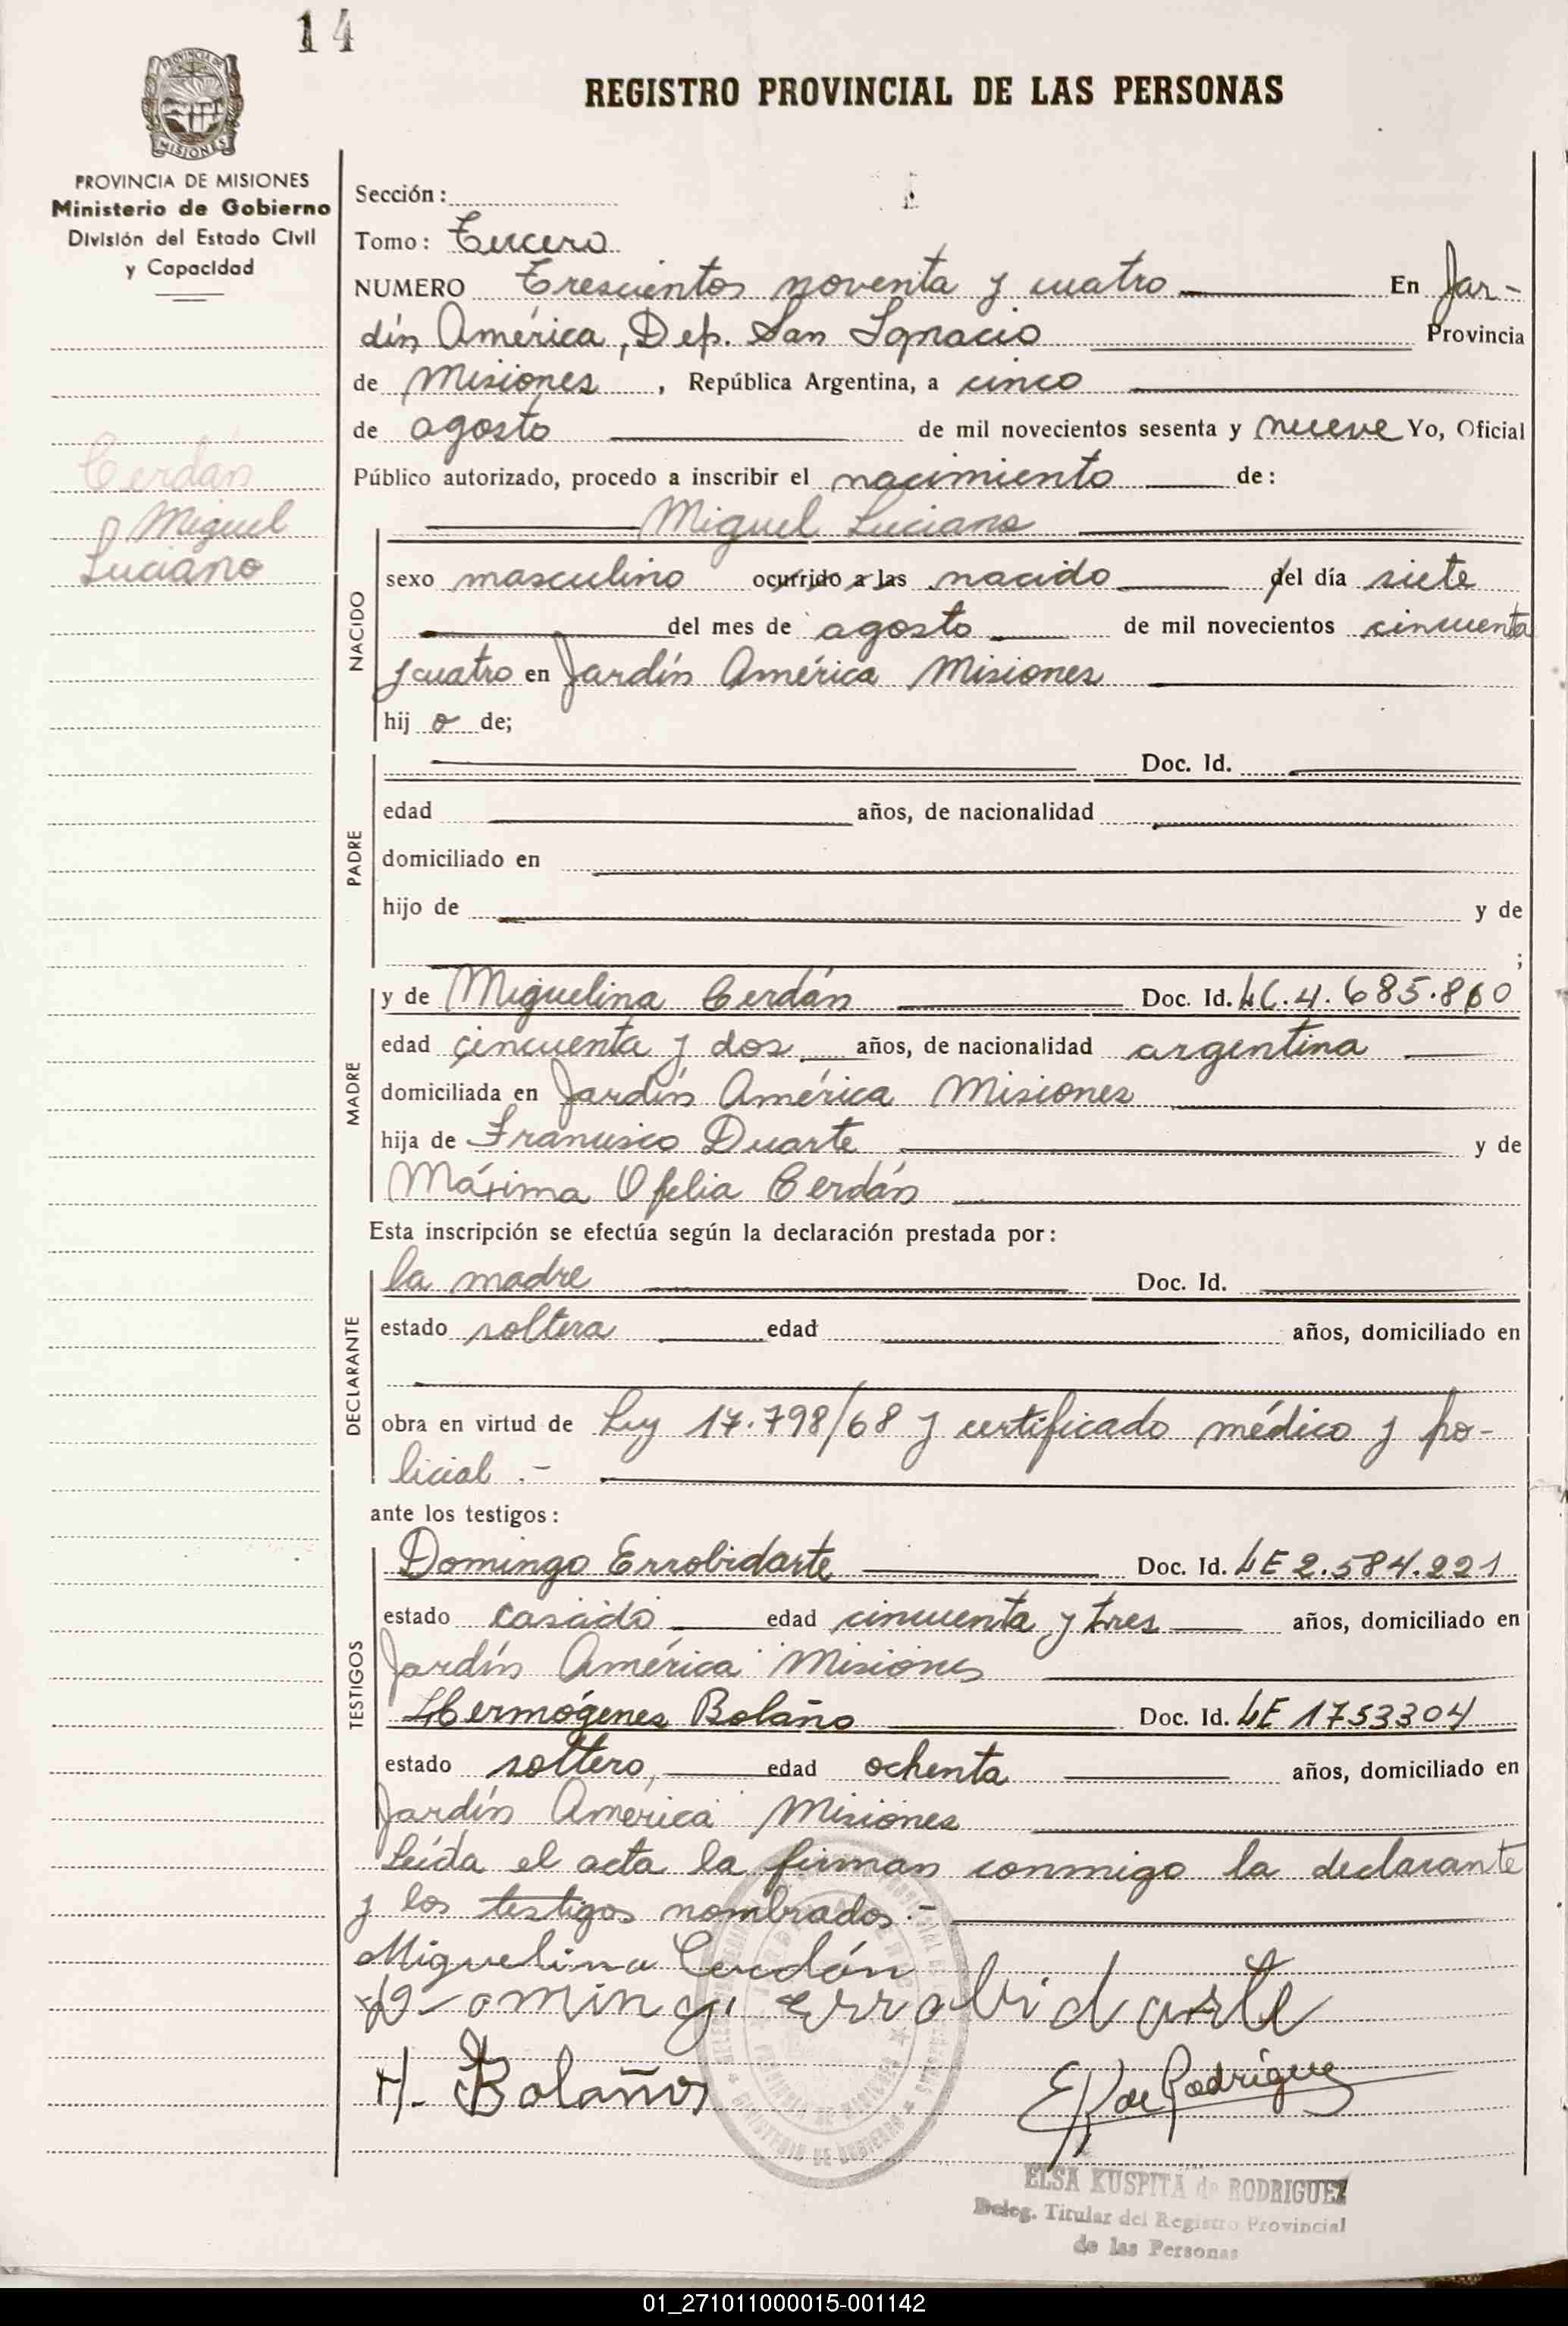 14
REGISTRO PROVINCIAL DE LAS PERSONAS
PROVINCIA DE MISIONES
Ministerio de Gobierno
División del Estado Civil
y Capacidad
Cerdán
Miguel
Luciano
Sección:
Tomo: Tercero
NUMERO Trescientos noventa y cuatro En Jar-
dín América, Dep. San Ignacio Provincia
de Misiones, República Argentina, a cinco
de agosto de mil novecientos sesenta y nueve Yo, Oficial
Público autorizado, procedo a inscribir el nacimiento de:
Miguel Luciano
NACIDO
sexo masculino ocurrido a las nacido del día siete
del mes de agosto de mil novecientos cincuenta
y cuatro en Jardín América Misiones
hij o de;
PADRE
Doc. Id.
edad años, de nacionalidad
domiciliado en
hijo de y de
;
MADRE
y de Miguelina Cerdán Doc. Id. LC. 4.685.860
edad cincuenta y dos años, de nacionalidad argentina
domiciliada en Jardín América Misiones
hija de Francisco Duarte y de
Máxima Ofelia Cerdán
Esta inscripción se efectúa según la declaración prestada por:
DECLARANTE
la madre Doc. Id.
estado soltera edad años, domiciliado en
obra en virtud de Ley 17.798/68 y certificado médico y po-
licial.-
ante los testigos:
TESTIGOS
Domingo Errobidarte Doc. Id. LE 2.584.221
estado casado edad cincuenta y tres años, domiciliado en
Jardín América Misiones
Hermógenes Bolaño Doc. Id. LE 1753304
estado soltero, edad ochenta años, domiciliado en
Jardín América Misiones
Leída el acta la firman conmigo la declarante
y los testigos nombrados.-
Miguelina Cerdán
Domingo Errobidarte
H. Bolaños
E K de Rodriguez
MINISTERIO DE GOBIERNO
PROVINCIA DE MISIONES
ELSA KUSPITA de RODRIGUEZ
Deleg. Titular del Registro Provincial
de las Personas
01_271011000015-001142